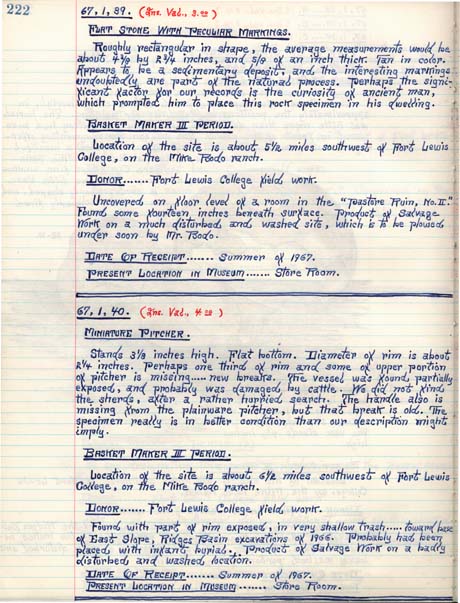 222
67,1,39. (Ins. Val., 3.00)
Flat Stone With Peculiar Markings.
Roughly rectangular in shape, the average measurements would be
about 4 3/8 by 2 3/4 inches, and 5/8 of an inch thick. Tan in color.
Appears to be a sedimentary deposit, and the interesting markings
undoubtedly are part of the natural process. Perhaps the signi-
ficant factor for our records is the curiosity of ancient man,
which prompted him to place this rock specimen in his dwelling.
Basket Maker III Period.
Location of the site is about 5 1/2 miles southwest of Fort Lewis
College, on the Mike Bodo ranch.
Donor....... Fort Lewis College field work.
Uncovered on floor level of a room in the "Peastore Ruin, No. II."
Found some fourteen inches beneath surface. Product of Salvage
Work on a much disturbed and washed site, which is to be plowed
under soon by Mr. Bodo.
Date Of Receipt....... Summer of 1967.
Present Location in Museum....... Store Room.
67,1,40. (Ins. Val., 4.00)
Miniature Pitcher.
Stands 3 1/8 inches high. Flat bottom. Diameter of rim is about
2 1/4 inches. Perhaps one third of rim and some of upper portion
of pitcher is missing.... new breaks. The vessel was found partially
exposed, and probably was damaged by cattle. We did not find
the sherds, after a rather hurried search. The handle also is
missing from the plainware pitcher, but that break is old. The
specimen really is in better condition than our description might
imply.
Basket Maker III Period.
Location of the site is about 6 1/2 miles southwest of Fort Lewis
College, on the Mike Bodo ranch.
Donor....... Fort Lewis College field work.
Found with part of rim exposed, in very shallow trash..... toward base
of East Slope, Ridges Basin excavations of 1966. Probably had been
placed with infant burial. Product of Salvage Work on a badly
disturbed and washed location.
Date Of Receipt....... Summer of 1967.
Present Location in Museum....... Store Room.